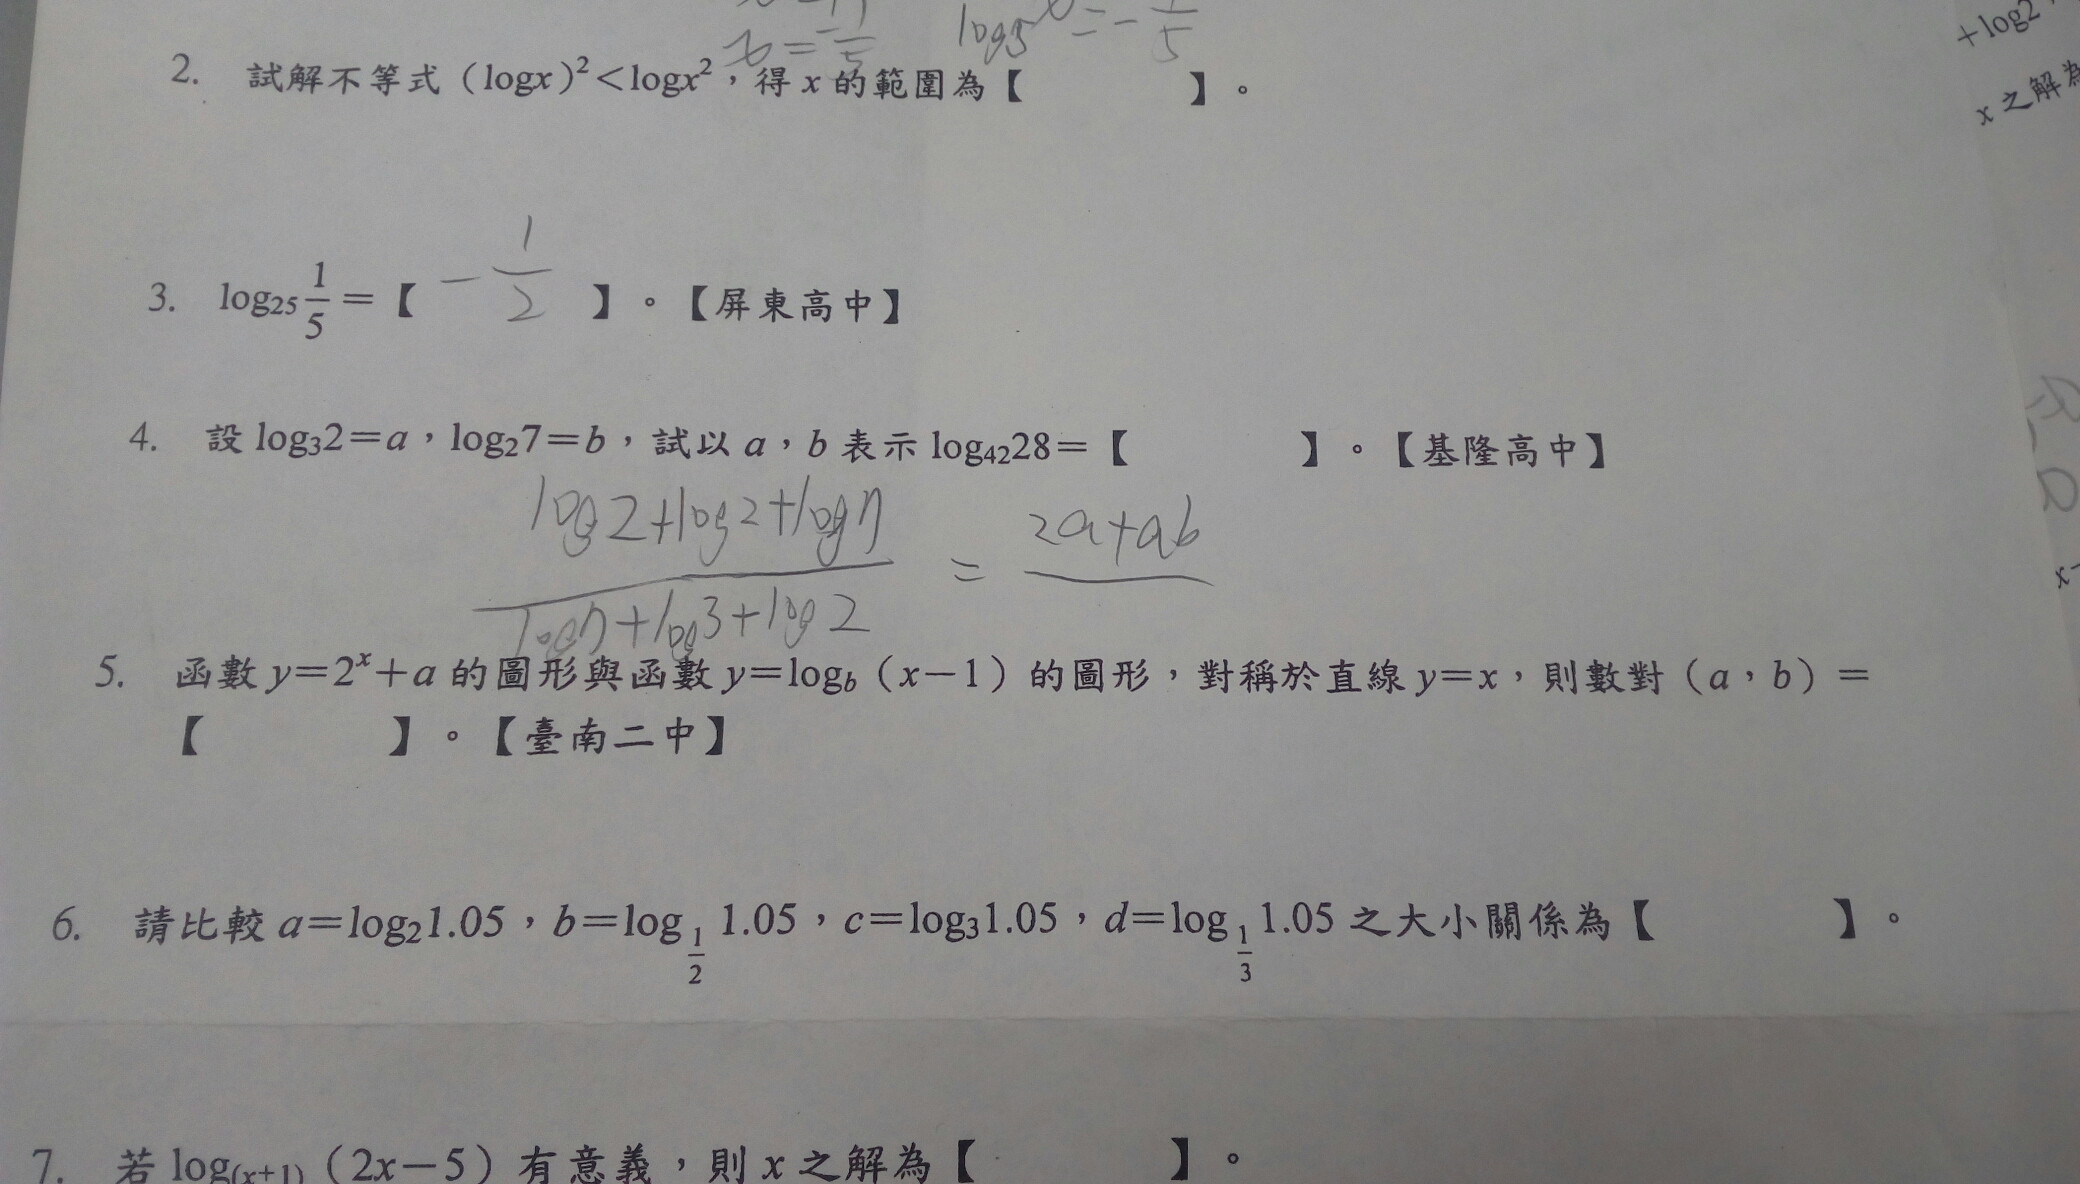 x=-1/5 log5 x=-1/5
+log2
2. 試解不等式（logx）²<logx²，得 x 的範圍為【 】。
x 之解為
3. log₂₅ 1/5 =【 -1/2 】。【屏東高中】
4. 設 log₃2=a，log₂7=b，試以 a，b 表示 log₄₂28=【 】。【基隆高中】
log2+log2+log7 / log7+log3+log2 = 2a+ab
5. 函數 y=2ˣ+a 的圖形與函數 y=log_b（x－1）的圖形，對稱於直線 y=x，則數對（a，b）=
【 】。【臺南二中】
6. 請比較 a=log₂1.05，b=log_{1/2} 1.05，c=log₃1.05，d=log_{1/3} 1.05 之大小關係為【 】。
7. 若 log₍ₓ₊₁₎（2x－5）有意義，則 x 之解為【 】。